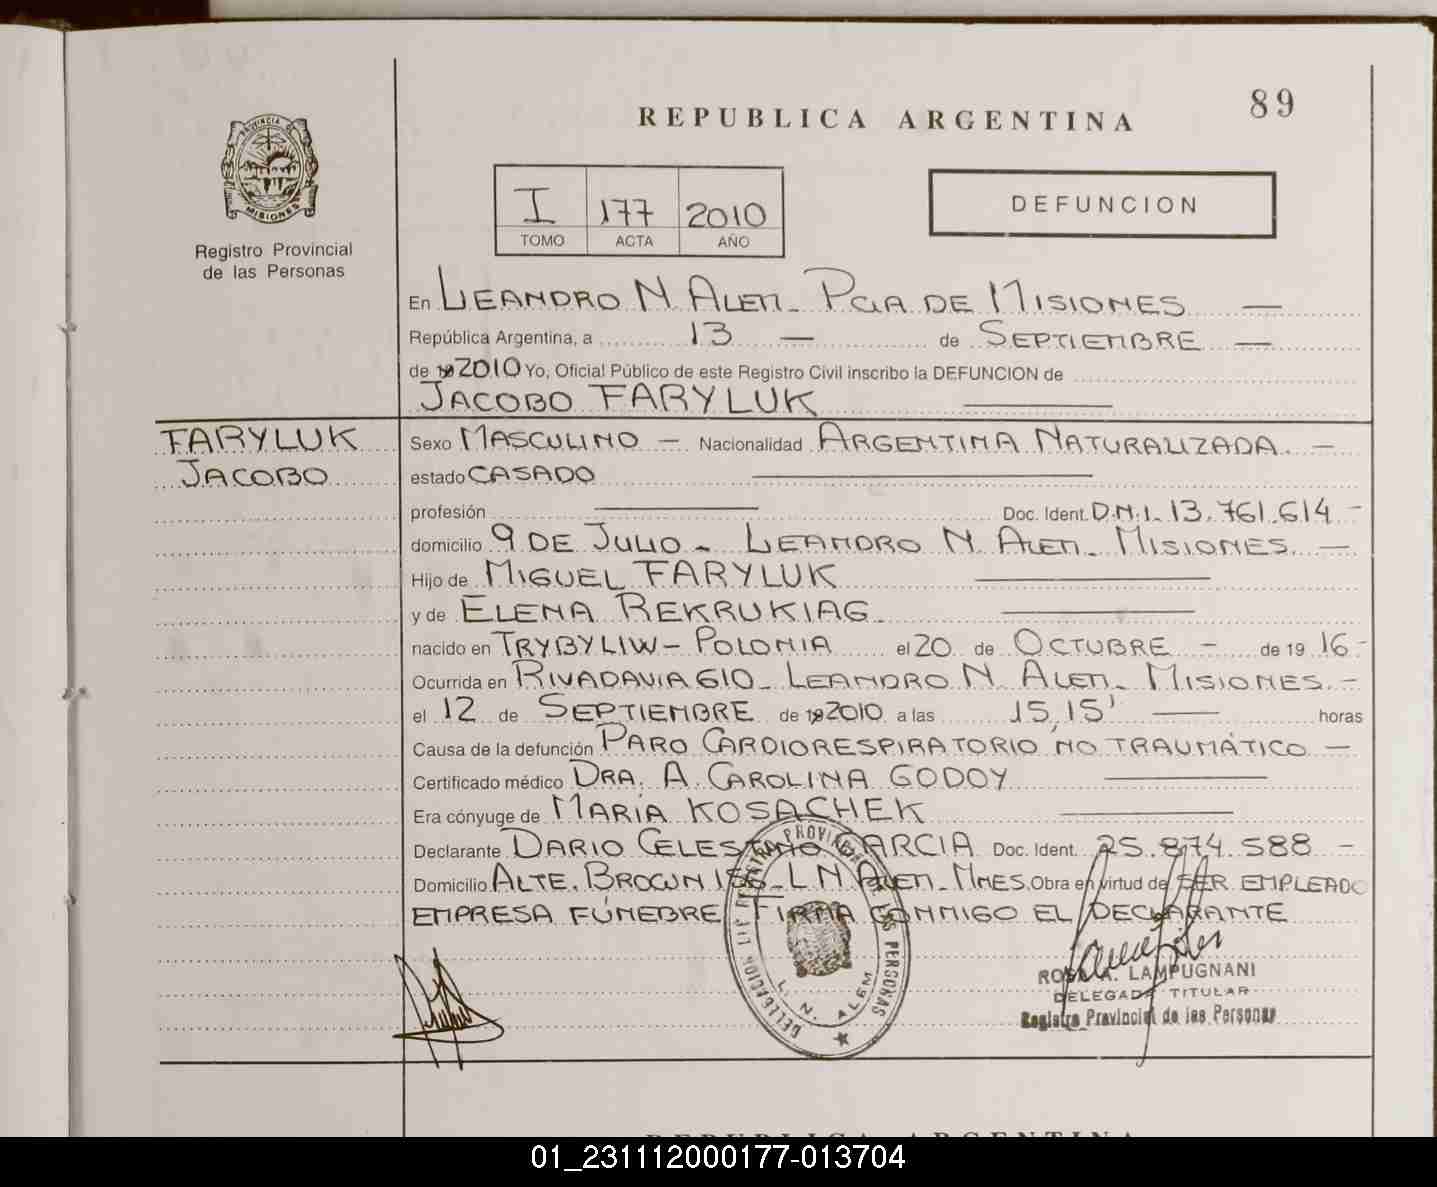 89
REPUBLICA ARGENTINA
PROVINCIA DE
MISIONES
Registro Provincial
de las Personas
I 177 2010
TOMO ACTA AÑO
DEFUNCION
En LEANDRO N. ALEM - PCIA DE MISIONES —
República Argentina, a 13 — de SEPTIEMBRE —
de 2010 Yo, Oficial Público de este Registro Civil inscribo la DEFUNCION de
JACOBO FARYLUK
FARYLUK
JACOBO
Sexo MASCULINO — Nacionalidad ARGENTINA NATURALIZADA. —
estado CASADO
profesión Doc. Ident. D.N.I. 13.761.614 -
domicilio 9 DE JULIO - LEANDRO N. ALEM - MISIONES —
Hijo de MIGUEL FARYLUK
y de ELENA REKRUKIAG
nacido en TRYBYLIW - POLONIA el 20 de OCTUBRE - de 19 16 -
Ocurrida en RIVADAVIA 610 - LEANDRO N. ALEM - MISIONES -
el 12 de SEPTIEMBRE de 2010 a las 15,15' — horas
Causa de la defunción PARO CARDIORESPIRATORIO NO TRAUMÁTICO —
Certificado médico DRA. A. CAROLINA GODOY
Era cónyuge de MARÍA KOSACHEK
Declarante DARIO CELESTINO GARCIA Doc. Ident. 25.874.588 -
Domicilio ALTE. BROWN - L.N. ALEM - MNES. Obra en virtud de SER EMPLEADO
EMPRESA FÚNEBRE. FIRMA CONMIGO EL DECLARANTE
DELEGACION DEL REGISTRO PROVINCIAL DE LAS PERSONAS
L. N. ALEM
ROSA A. LAMPUGNANI
DELEGADA TITULAR
Registro Provincial de las Personas
REPUBLICA ARGENTINA
01_231112000177-013704